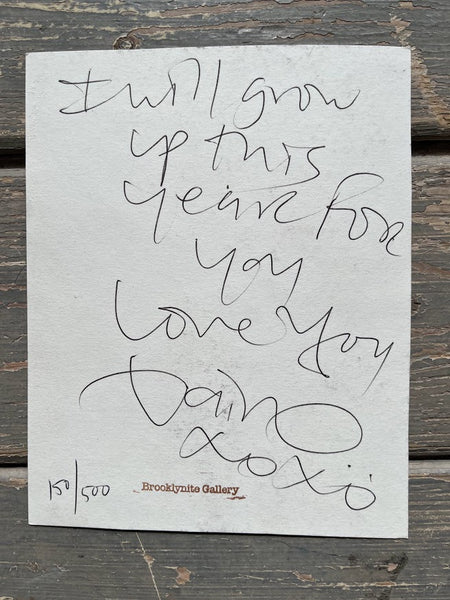 I will grow
up this
year for
you
Love You
Dain
xoxo
150/500
Brooklynite Gallery